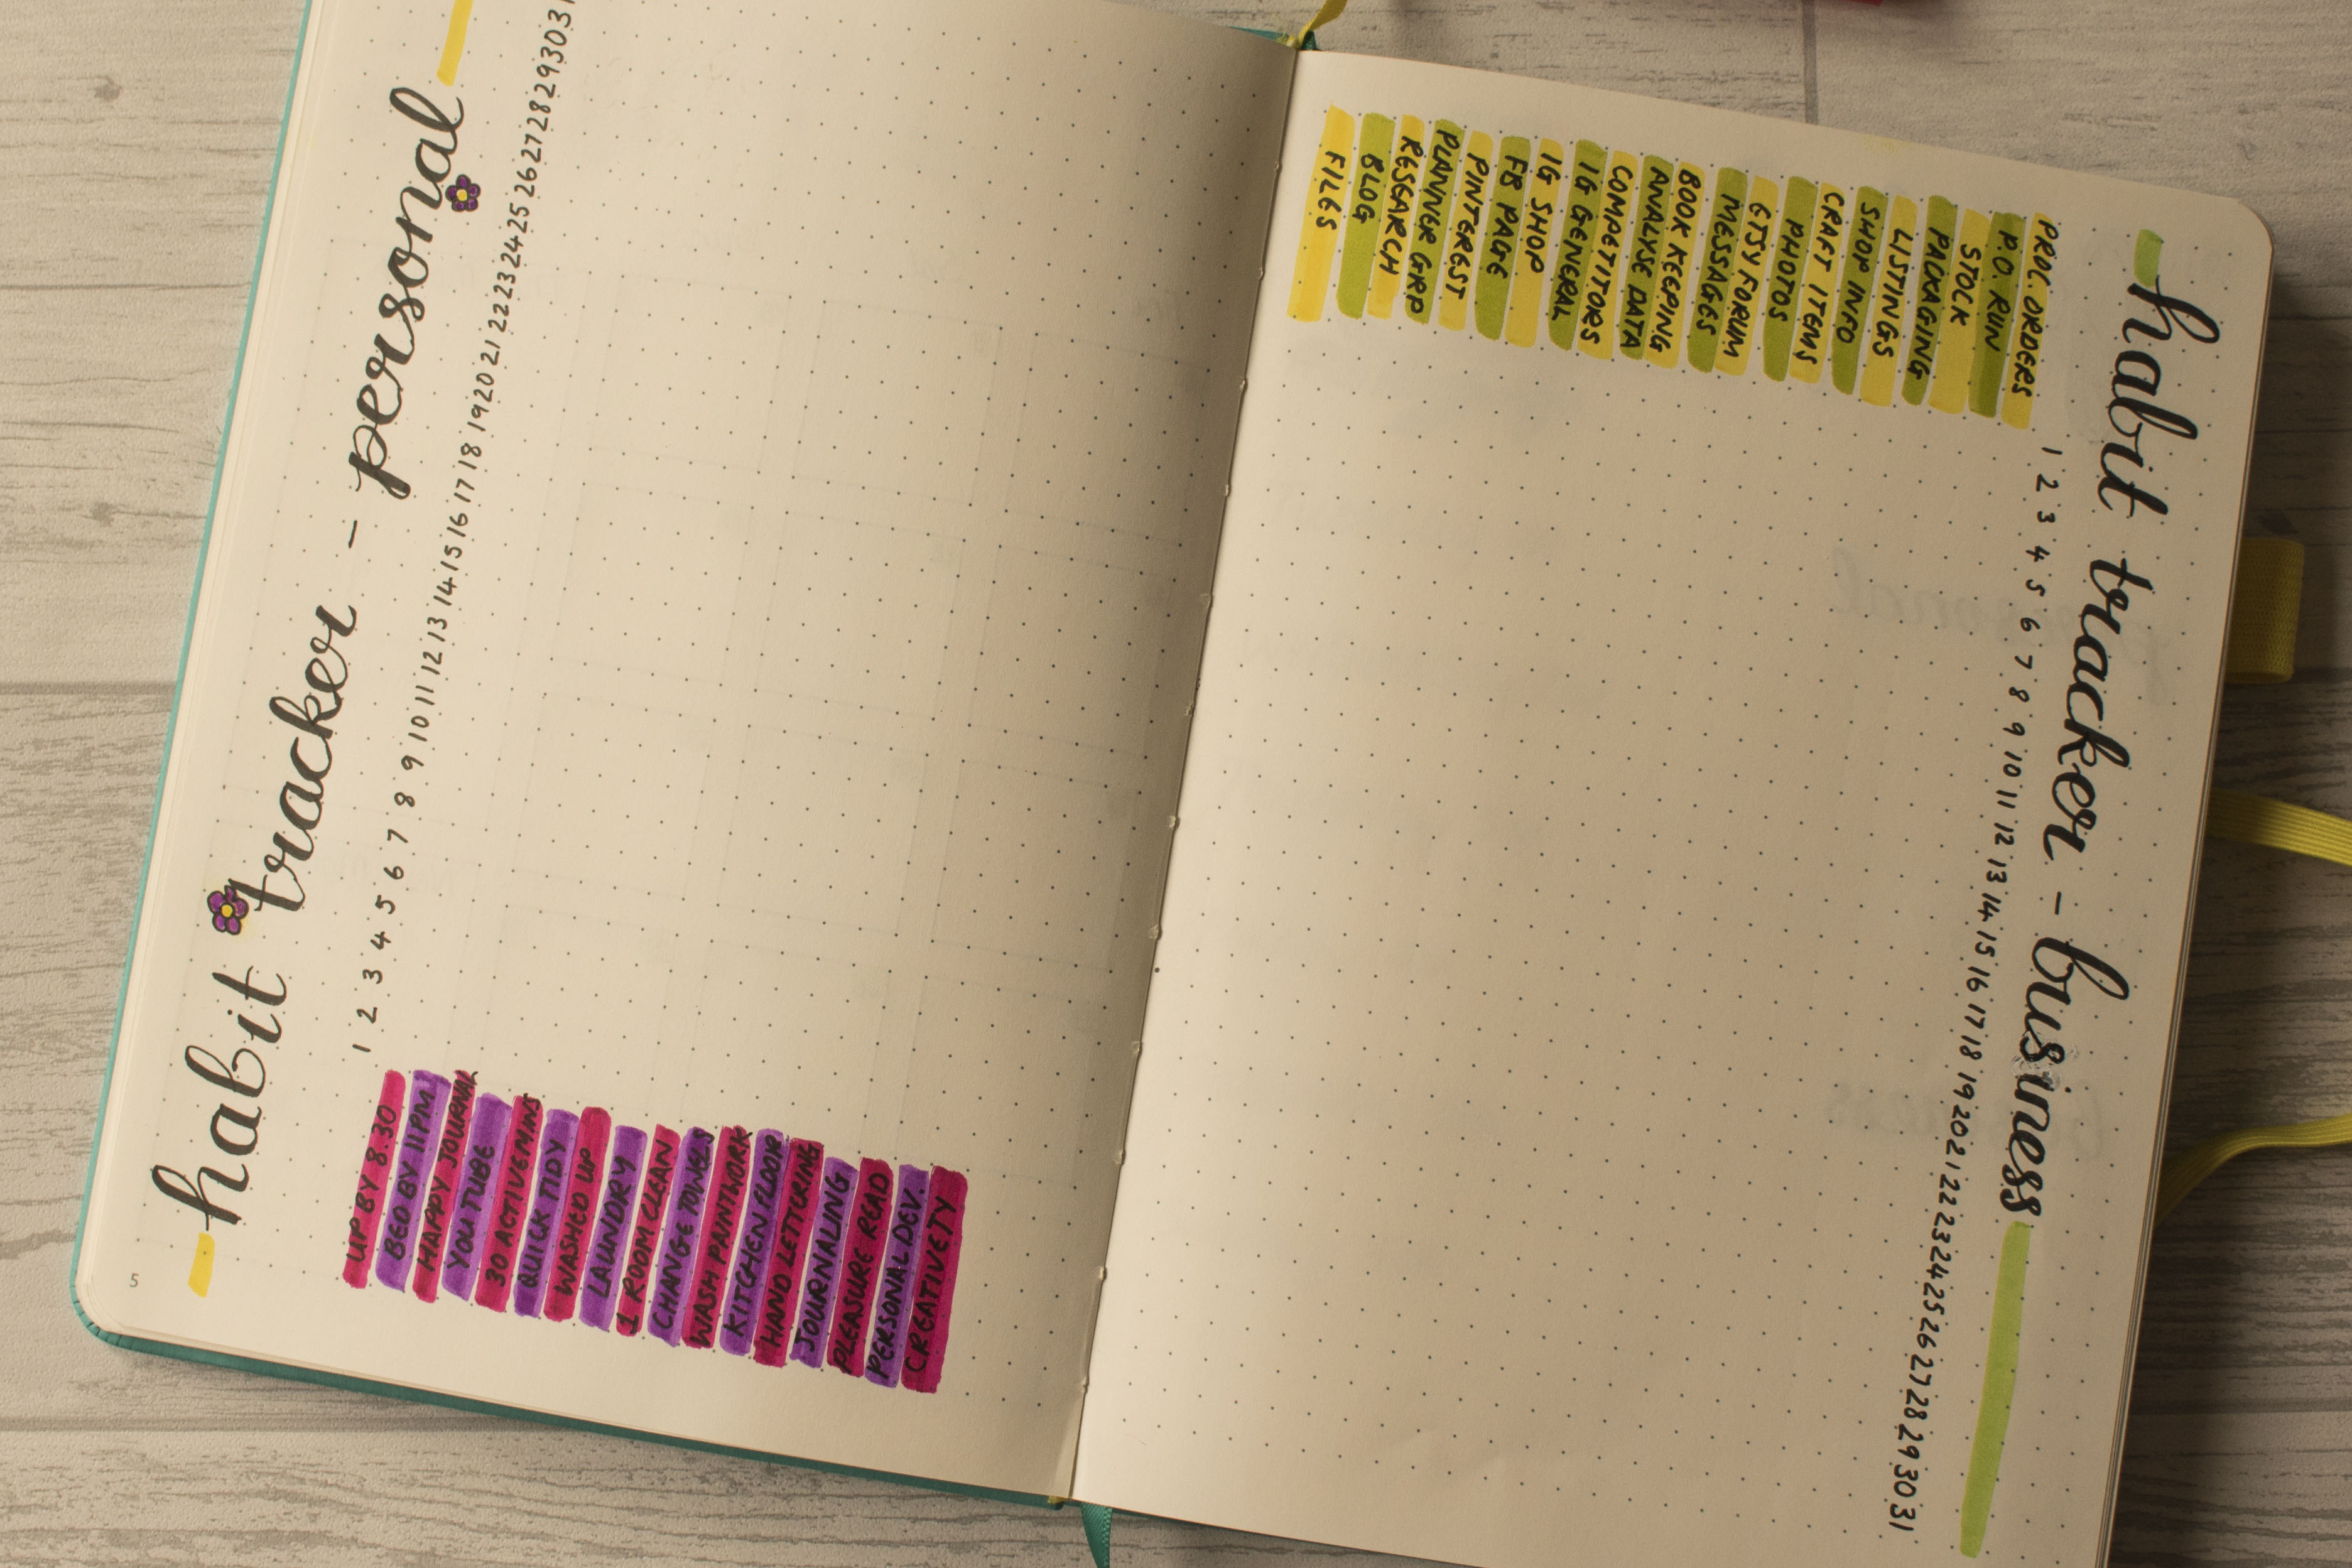 habit tracker - personal
1 2 3 4 5 6 7 8 9 10 11 12 13 14 15 16 17 18 19 20 21 22 23 24 25 26 27 28 29 30 31
UP BY 8.30
BED BY 11PM
HAPPY JOURNAL
YOUTUBE
30 ACTIVE MINS
QUICK TIDY
WASHED UP
LAUNDRY
1 ROOM CLEAN
CHANGE TOWELS
WASH PAINTWORK
KITCHEN FLOOR
HAND LETTERING
JOURNALING
PLEASURE READ
PERSONAL DEV.
CREATIVETY
5
habit tracker - business
1 2 3 4 5 6 7 8 9 10 11 12 13 14 15 16 17 18 19 20 21 22 23 24 25 26 27 28 29 30 31
PROC. ORDERS
P.O. RUN
STOCK
PACKAGING
LISTINGS
SHOP INFO
CRAFT ITEMS
PHOTOS
ETSY FORUM
MESSAGES
BOOK KEEPING
ANALYSE DATA
COMPETITORS
IG GENERAL
IG SHOP
FB PAGE
PINTEREST
PLANNER GRP
RESEARCH
BLOG
FILES